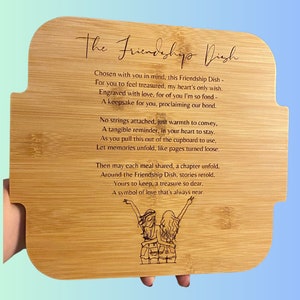 The Friendship Dish
Chosen with you in mind, this Friendship Dish -
For you to feel treasured, my heart's only wish.
Engraved with love, for of you I'm so fond -
A keepsake for you, proclaiming our bond.
No strings attached, just warmth to convey,
A tangible reminder, in your heart to stay.
As you pull this out of the cupboard to use,
Let memories unfold, like pages turned loose
Then may each meal shared, a chapter unfold,
Around the Friendship Dish, stories retold.
Yours to keep, a treasure so dear,
A symbol of love that's always near.